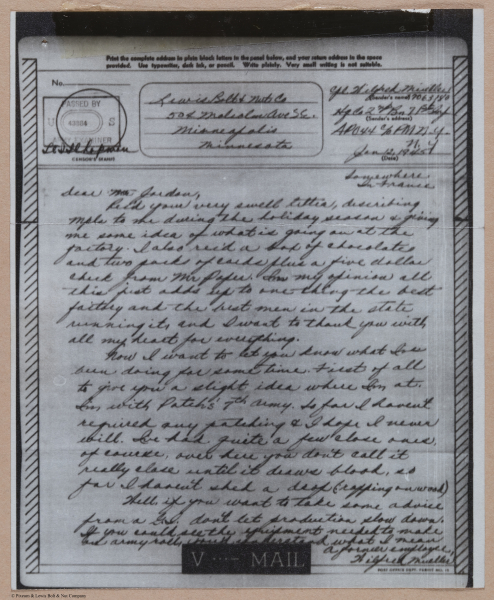 Print the complete address in plain block letters in the panel below, and your return address in the space
provided. Use typewriter, dark ink, or pencil. Write plainly. Very small writing is not suitable.
No.
PASSED BY
ARMY EXAMINER
CENSOR'S STAMP
Lewis Bolt & Nut Co
504 Malcolm Ave S.E.
Minneapolis
Minnesota
Cpl. Wilfred Mueller
(Sender's name)
Hq Co 2nd Bn
(Sender's address)
APO 44 % PM N.Y.
N.Y.
Jan 2, 1945
(Date)
Somewhere
In France
Dear Mr. Jordan,
Rec'd your very swell letter, describing
Mpls to me during the holiday season & giving
me some idea of what is going on at the
factory. I also rec'd a box of chocolates
and two packs of cards plus a five dollar
check from Mr Pope. In my opinion all
this just adds up to one thing the best
factory and the best men in the state
running it, and I want to thank you with
all my heart for everything.
Now I want to let you know what I've
been doing for some time. First of all
to give you a slight idea where I'm at.
I'm with Patch's 7th Army. So far I haven't
required any patching & I hope I never
will. I've had quite a few close ones,
of course, over here you don't call it
really close until it draws blood, so
far I haven't shed a drop (rapping on wood)
Well, if you want to take some advice
from a G.I. don't let production slow down.
If you could see the equipment needed to make
an army roll, you'd understand what I mean
A former employee,
Wilfred Mueller
V ···— MAIL
© Pioneer & Lewis Bolt & Nut Company